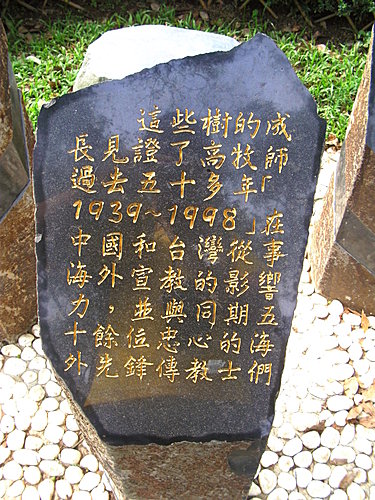 這些樹的成
長見證了高牧師「
過去五十多年
1939~1998」在
中國和台灣從事
海外宣教的影響
力，並與同期五
十餘位忠心的海
外先鋒傳教士們